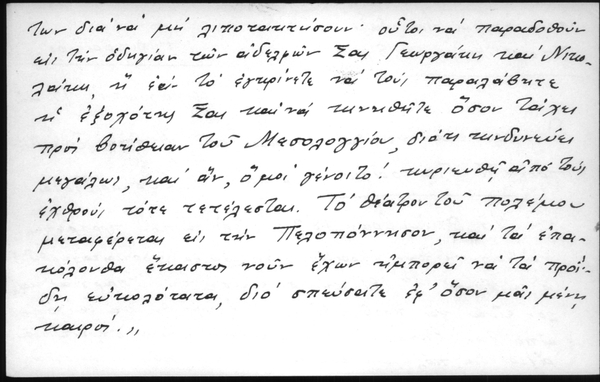 των διὰ νὰ μὴ λιποτακτήσουν· οὗτοι νὰ παραδοθοῦν
εἰς τὴν ὁδηγίαν τῶν ἀδελφῶν Σας Γεωργάκη καὶ Νικο-
λάκη, ἢ ἐὰν τὸ ἐγκρίνετε νὰ τοὺς παραλάβητε
ἡ ἐξοχότης Σας καὶ νὰ κινηθῆτε ὅσον τάχει
πρὸς βοήθειαν τοῦ Μεσολογγίου, διότι κινδυνεύει
μεγάλως, καὶ ἄν, ὅ μοι γένοιτο! κυριευθῇ ἀπὸ τοὺς
ἐχθροὺς τότε τετέλεσται. Τὸ θέατρον τοῦ πολέμου
μεταφέρεται εἰς τὴν Πελοπόννησον, καὶ τὰ ἐπα-
κόλουθα ἕκαστος νοῦν ἔχων ἠμπορεῖ νὰ τὰ προΐ-
δῃ εὐκολότατα, διὸ σπεύσατε ἐφ' ὅσον μᾶς μένει
καιρός.,,